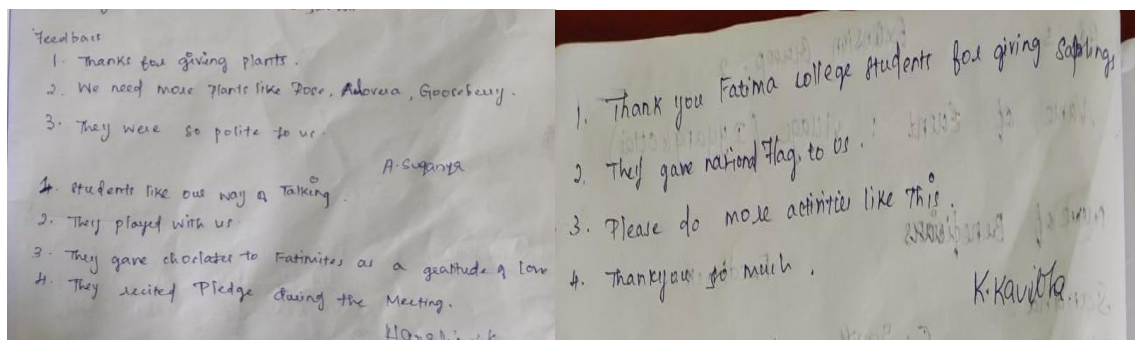 Feedback
1. Thanks for giving plants.
2. We need more plants like Rose, Adovera, Gooseberry.
3. They were so polite to us.
A. Suganya
1. Students like our way of Talking.
2. They played with us
3. They gave choclates to Fatimites as a geatitude of love
4. They recited Pledge during the Meeting.
1. Thank you Fatima college students for giving saplings
2. They gave national Flag, to us.
3. Please do more activities like This.
4. Thankyou so much.
K. Kavitha